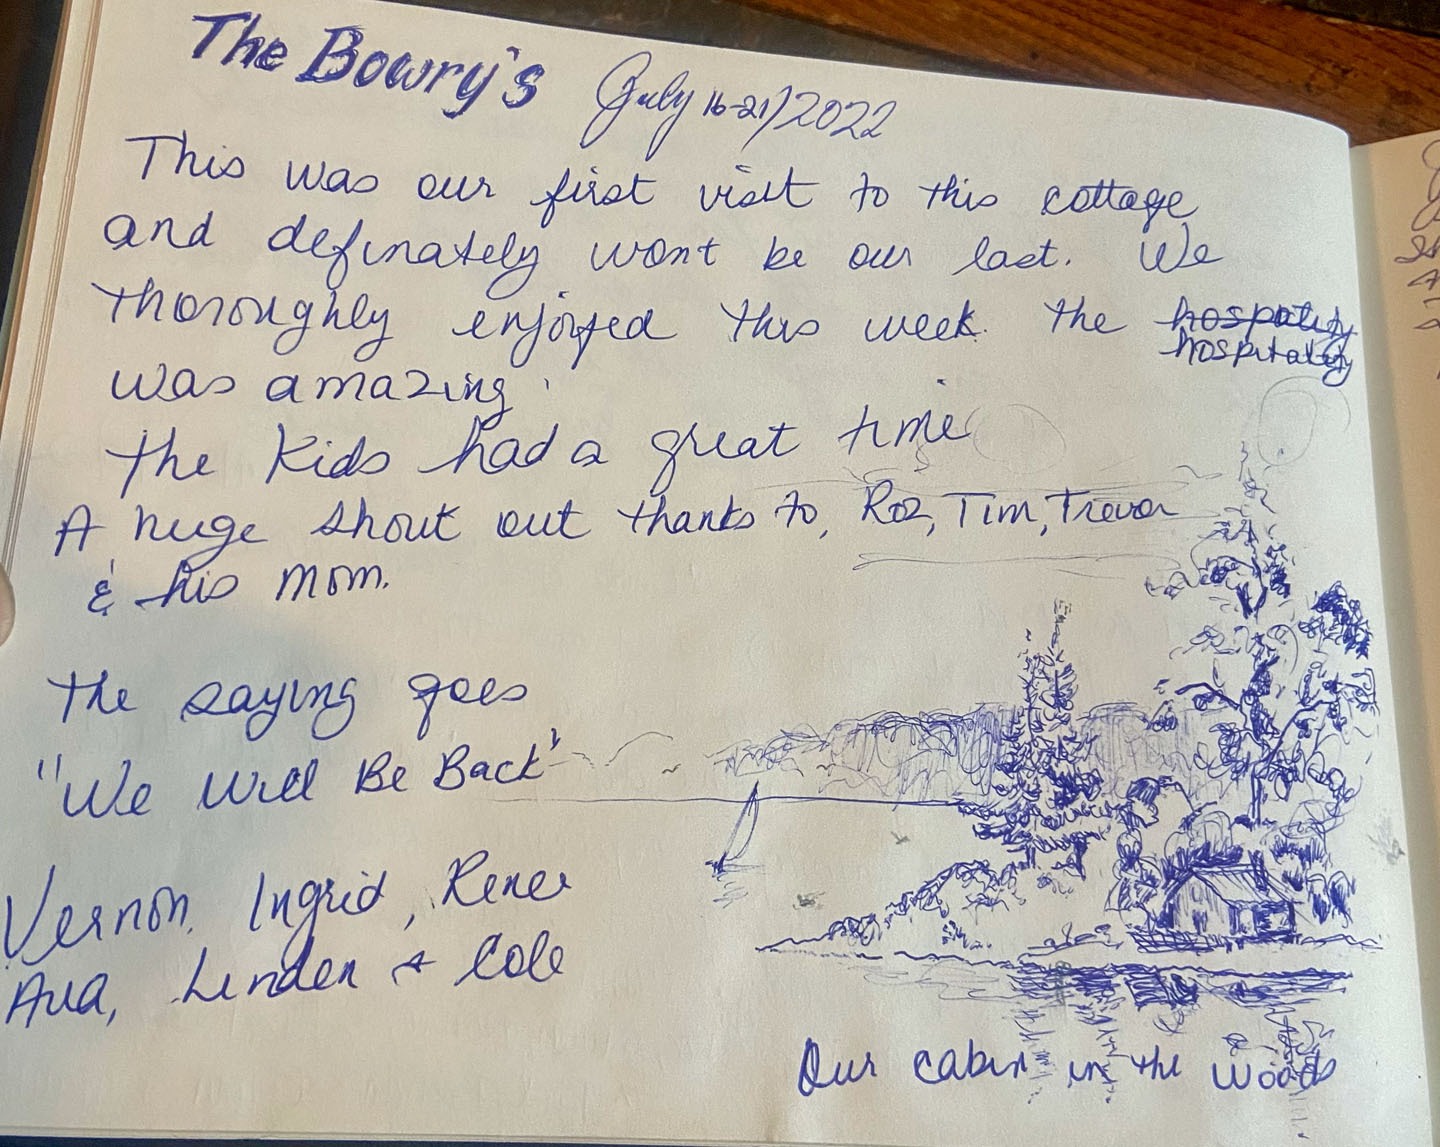 The Bowry's July 16-21/2022
This was our first visit to this cottage
and definately won't be our last. We
thoroughly enjoyed this week. The hospitality
hospitality
was amazing.
The Kids had a great time
A huge shout out thanks to, Roz, Tim, Trevor
& his mom.
The saying goes
"We Will Be Back"
Vernon, Ingrid, Renee
Ava, Linden & Cole
Our cabin in the woods